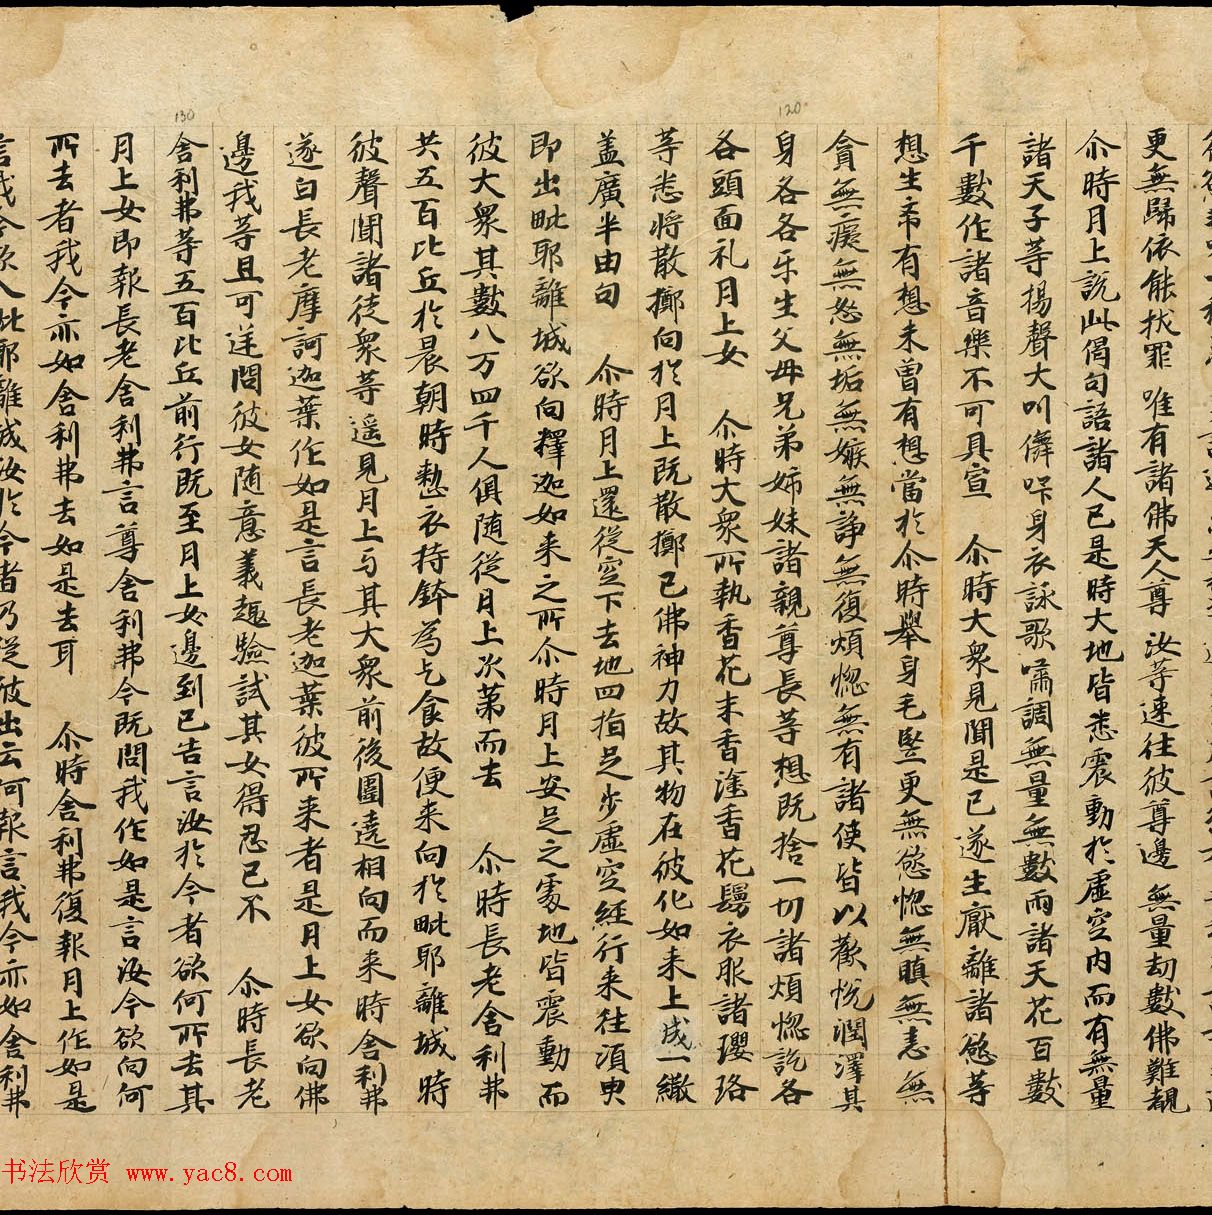 更無歸依能救罪 唯有諸佛天人尊 汝等速往彼尊邊 無量劫數佛難覩
尒時月上說此偈句語諸人已是時大地皆悉震動於虛空內而有無量
諸天子等揚聲大叫儛 身衣詠歌嘯調無量無數雨諸天花百數
千數作諸音樂不可具宣 尒時大衆見聞是已遂生厭離諸慾等
想生希有想未曾有想當於尒時舉身毛竪更無慾惚無瞋無恚無
貪無癡無怒無垢無嫉無諍無復煩惚無有諸使皆以歡悅潤澤其
身各各乐生父母兄弟姉妹諸親尊長等想既捨一切諸煩惚訖各
各頭面礼月上女 尒時大衆所執香花末香塗香花鬘衣服諸瓔珞
等悉將散擲向於月上既散擲已佛神力故其物在彼化如来上成一繖
盖廣半由旬 尒時月上還從空下去地四指足步虛空經行来往須臾
即出毗耶離城欲向釋迦如来之所尒時月上安足之處地皆震動而
彼大衆其數八万四千人俱随從月上次第而去 尒時長老舍利弗
共五百比丘於晨朝時懃衣持鉢為乞食故便来向於毗耶離城時
彼聲聞諸徒衆等遥見月上与其大衆前後圍遶相向而来時舍利弗
遂白長老摩訶迦葉作如是言長老迦葉彼所来者是月上女欲向佛
邊我等且可逆問彼女随意義趣驗試其女得忍已不 尒時長老
舍利弗等五百比丘前行既至月上女邊到已告言汝於今者欲何所去其
月上女即報長老舍利弗言尊舍利弗今既問我作如是言汝今欲向何
所去者我今亦如舍利弗去如是去耳 尒時舍利弗復報月上作如是
言我今欲入毗耶離城汝於今者乃從彼出云何報言我今亦如舍利弗
120
130
书法欣赏 www.yac8.com